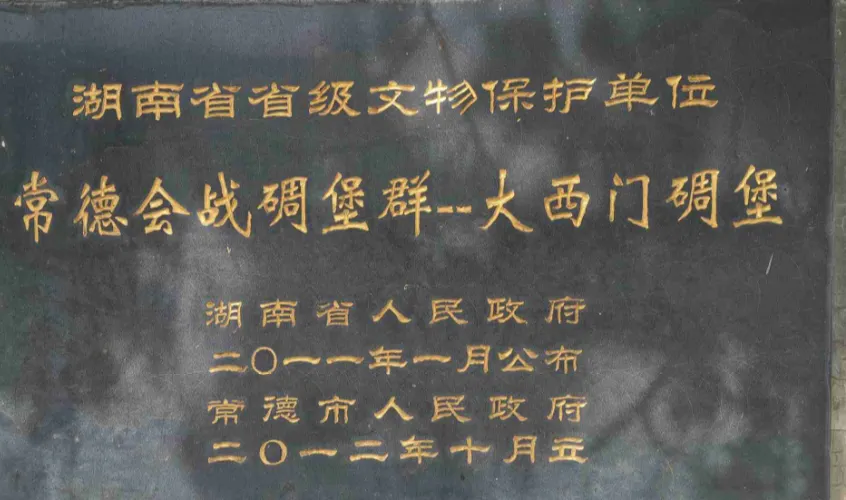 湖南省省级文物保护单位
常德会战碉堡群--大西门碉堡
湖南省人民政府
二〇一一年一月公布
常德市人民政府
二〇一二年十月立